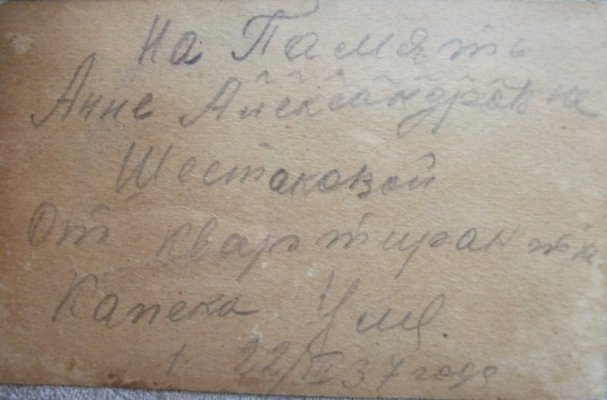 На Память
Анне Александровне
Шестаковой
От квартирантки
Капека
22/II 37 года